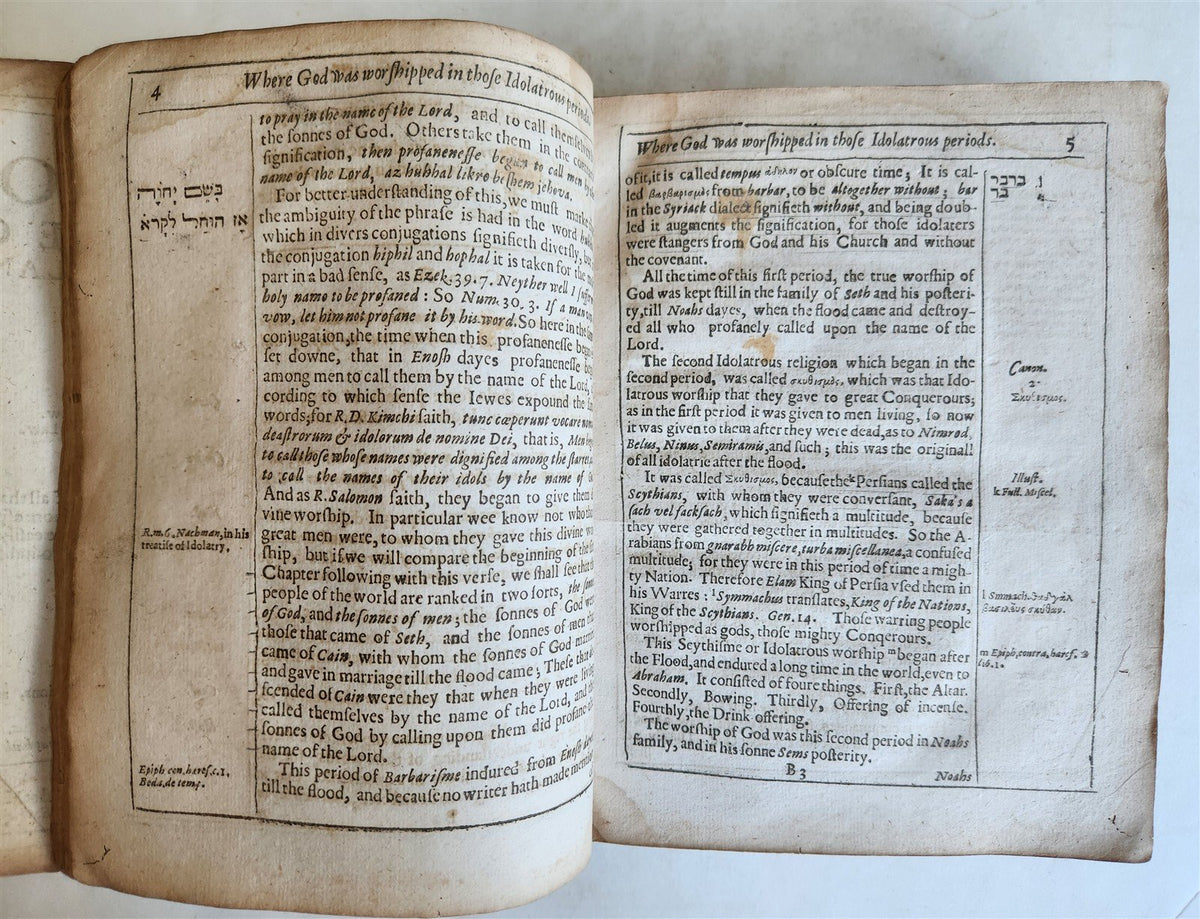 4 Where God was worſhipped in thoſe Idolatrous periods.
to pray in the name of the Lord, and to call themſelves
the ſonnes of God. Others take them in the contrary
ſignification, then profaneneſſe began to call men by the
name of the Lord, az huhhal likro beſhem jehova.
For better underſtanding of this, we muſt marke
the ambiguity of the phraſe is had in the word
which in divers conjugations ſignifieth diverſly,
the conjugation hiphil and hophal it is taken for the
part in a bad ſenſe, as Ezek. 39. 7. Neyther well I ſuffer
holy name to be profaned : So Num. 30. 3. If a man
vow, let him not profane it by his word. So here in the
conjugation, the time when this profaneneſſe
ſet downe, that in Enoſh dayes profaneneſſe
among men to call them by the name of the Lord,
cording to which ſenſe the Iewes expound the
words; for R. D. Kimchi ſaith, tunc cæperunt vocare
deaſtrorum & idolorum de nomine Dei, that is, Men
to call thoſe whoſe names were dignified among the ſtarres
to call the names of their idols by the name of
And as R. Salomon ſaith, they began to give them
vine worſhip. In particular wee know not who
great men were, to whom they gave this divine
ſhip, but if we will compare the beginning of the
Chapter following with this verſe, we ſhall ſee that
people of the world are ranked in two ſorts, the
of God, and the ſonnes of men; the ſonnes of God
thoſe that came of Seth, and the ſonnes of men
came of Cain, with whom the ſonnes of God
and gave in marriage till the flood came; Theſe that
ſcended of Cain were they that when they were
called themſelves by the name of the Lord, and
ſonnes of God by calling upon them did profane
name of the Lord.
This period of Barbariſme indured from Enoſh
till the flood, and becauſe no writer hath made
בְּשֵׁם יְהוָֹה
אָז הוּחַל לִקְרֹא
R. m. G. Nachman, in his
treatiſe of Idolatry.
Epiph con. hareſ. c. 1.
Beda, de temp.
Where God was worſhipped in thoſe Idolatrous periods. 5
of it, it is called tempus ἄδηλον or obſcure time; It is cal-
led βαρβαρισμὸς from barbar, to be altogether without; bar
in the Syriack dialect ſignifieth without, and being doub-
led it augments the ſignification, for thoſe idolaters
were ſtangers from God and his Church and without
the covenant.
All the time of this firſt period, the true worſhip of
God was kept ſtill in the family of Seth and his poſteri-
ty, till Noahs dayes, when the flood came and deſtroy-
ed all who profanely called upon the name of the
Lord.
The ſecond Idolatrous religion which began in the
ſecond period, was called σκυθισμὸς, which was that Ido-
latrous worſhip that they gave to great Conquerours;
as in the firſt period it was given to men living, ſo now
it was given to them after they were dead, as to Nimrod,
Belus, Ninus, Semiramis, and ſuch; this was the originall
of all idolatrie after the flood.
It was called Σκυθισμος, becauſe the k Perſians called the
Scythians, with whom they were converſant, Saka's a
ſach vel ſackſach, which ſignifieth a multitude, becauſe
they were gathered together in multitudes. So the A-
rabians from gnarabb miſcere, turba miſcellanea, a confuſed
multitude; for they were in this period of time a migh-
ty Nation. Therefore Elam King of Perſia vſed them in
his Warres : l Symmachus tranſlates, King of the Nations,
King of the Scythians. Gen. 14. Thoſe warring people
worſhipped as gods, thoſe mighty Conquerours.
This Scythiſme or Idolatrous worſhip m began after
the Flood, and endured a long time in the world, even to
Abraham. It conſiſted of foure things. Firſt, the Altar.
Secondly, Bowing. Thirdly, Offering of incenſe.
Fourthly, the Drink offering.
The worſhip of God was this ſecond period in Noahs
family, and in his ſonne Sems poſterity.
B 3
Noahs
ברבר
בר
Canon.
2.
Σκυθισμος.
Illuſt.
k Full. Miſcel.
l Smmach.
βασιλεὺς σκυθῶν.
m Epiph, contra, hareſ.
lib. 1.